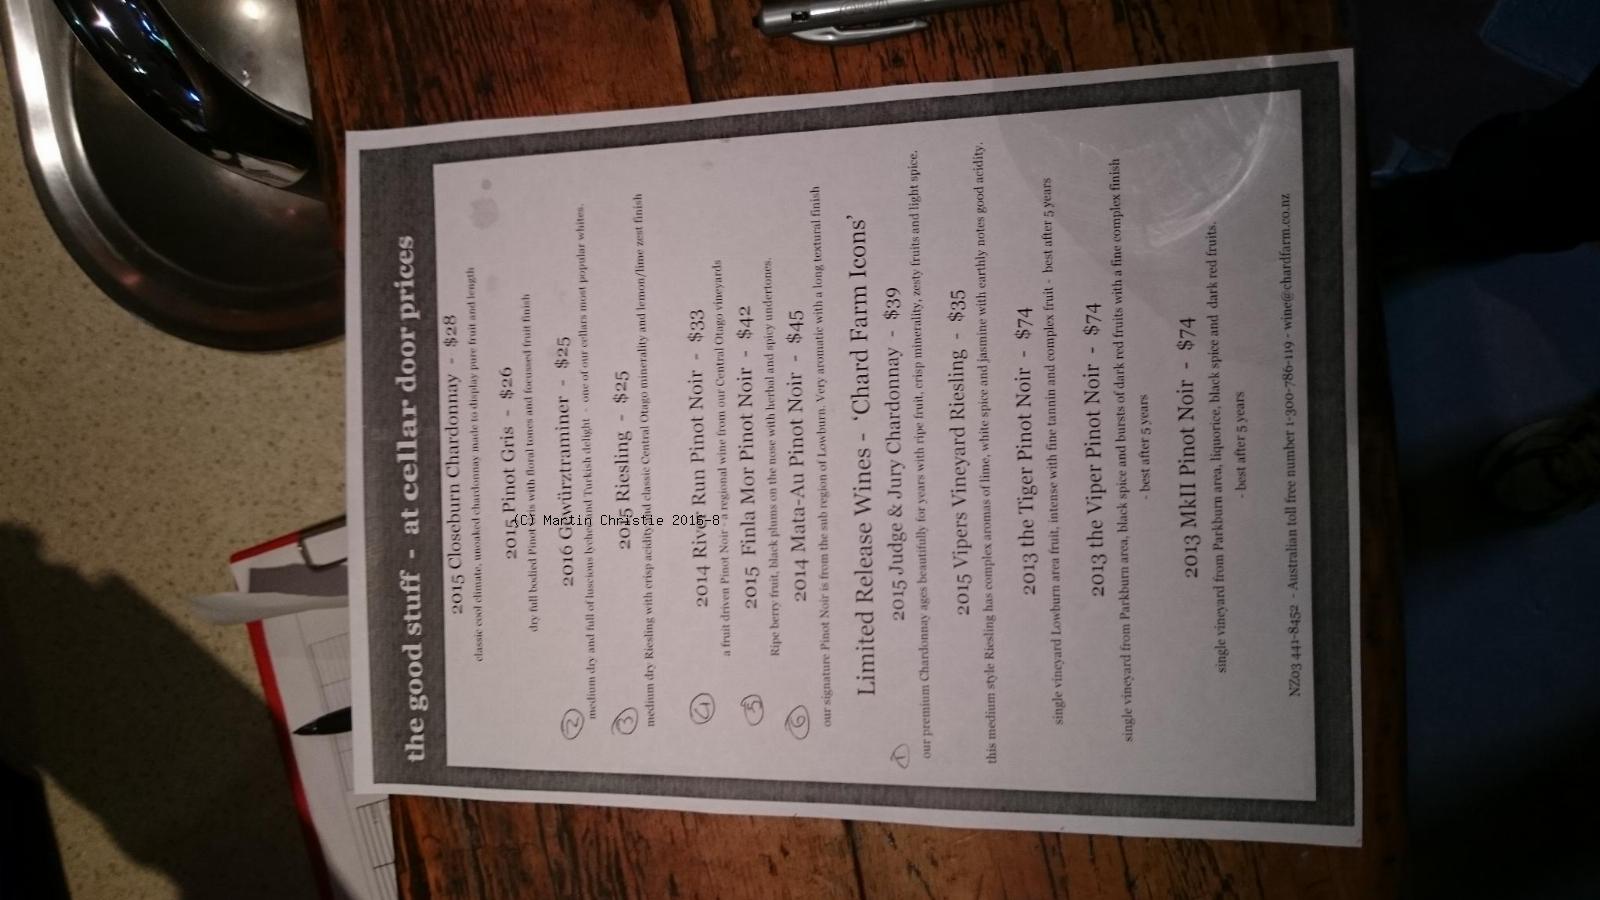 the good stuff - at cellar door prices
2015 Closeburn Chardonnay - $28
classic cool climate, unoaked chardonnay made to display pure fruit and length
2015 Pinot Gris - $26
dry full bodied Pinot Gris with floral tones and focussed fruit finish
② 2016 Gewürztraminer - $25
medium dry and full of luscious lychee and Turkish delight - one of our cellars most popular whites.
③ 2015 Riesling - $25
medium dry Riesling with crisp acidity and classic Central Otago minerality and lemon/lime zest finish
④ 2014 River Run Pinot Noir - $33
a fruit driven Pinot Noir - a regional wine from our Central Otago vineyards
⑤ 2015 Finla Mor Pinot Noir - $42
Ripe berry fruit, black plums on the nose with herbal and spicy undertones.
⑥ 2014 Mata-Au Pinot Noir - $45
our signature Pinot Noir is from the sub region of Lowburn. Very aromatic with a long textural finish
Limited Release Wines - 'Chard Farm Icons'
① 2015 Judge & Jury Chardonnay - $39
our premium Chardonnay ages beautifully for years with ripe fruit, crisp minerality, zesty fruits and light spice.
2015 Vipers Vineyard Riesling - $35
this medium style Riesling has complex aromas of lime, white spice and jasmine with earthly notes good acidity.
2013 the Tiger Pinot Noir - $74
single vineyard Lowburn area fruit, intense with fine tannin and complex fruit - best after 5 years
2013 the Viper Pinot Noir - $74
single vineyard from Parkburn area, black spice and bursts of dark red fruits with a fine complex finish
- best after 5 years
2013 MkII Pinot Noir - $74
single vineyard from Parkburn area, liquorice, black spice and dark red fruits.
- best after 5 years
NZ03 441-8452 - Australian toll free number 1-300-786-119 - wine@chardfarm.co.nz
(C) Martin Christie 2016-8